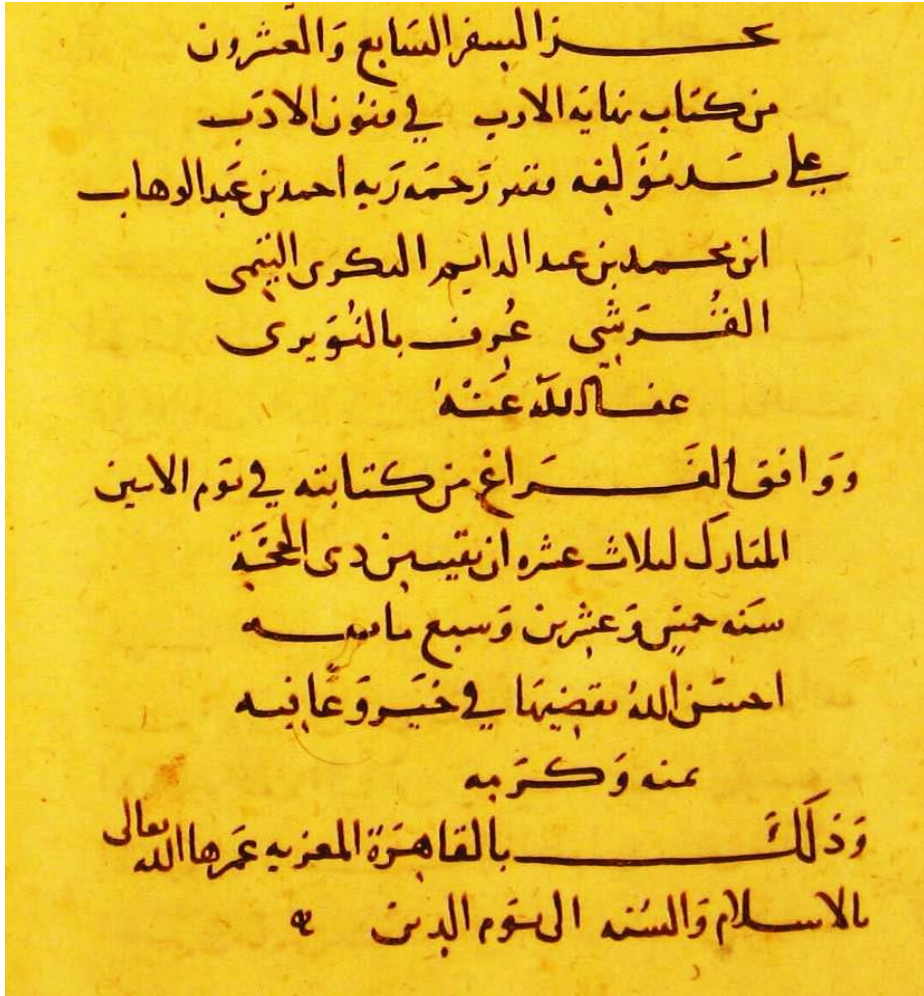 نجز السفر السابع والعشرون
من كتاب نهاية الارب في فنون الادب
على يد مؤلفه فقير رحمة ربه احمد بن عبد الوهاب
ابن محمد بن عبد الدايم البكرى التيمى
القُرَشي عُرف بالنُوَيرى
عفا الله عَنْهُ
وَوَافق الفَرَاغ من كتابته في يَوم الاثنين
المبَارَك لثلاث عشره ان بقيت من ذى الحجَّة
سَنَه خمس وَعشرين وَسبع مايه
احسَن الله تقضيها في خَير وَعَافيه
بمنه وَكرَمه
وَذلكَ بالقاهرَة المعزيه عَمرها الله تعالى
بالاسلام وَالسُنه الى يَوم الدين